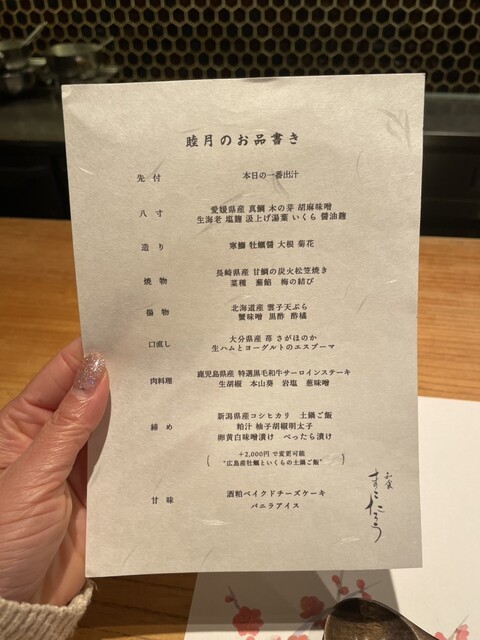 睦月のお品書き
先付 本日の一番出汁
八寸 愛媛県産 真鯛 木の芽 胡麻味噌
生海老 塩麹 汲上げ湯葉 いくら 醤油麹
造り 寒鰤 牡蠣醤 大根 菊花
焼物 長崎県産 甘鯛の炭火松笠焼き
菜種 蕪餡 梅の結び
揚物 北海道産 雲子天ぷら
蟹味噌 黒酢 酢橘
口直し 大分県産 苺 さがほのか
生ハムとヨーグルトのエスプーマ
肉料理 鹿児島県産 特選黒毛和牛サーロインステーキ
生胡椒 本山葵 岩塩 葱味噌
締め 新潟県産コシヒカリ 土鍋ご飯
粕汁 柚子胡椒明太子
卵黄白味噌漬け べったら漬け
( +2,000円で変更可能
"広島産牡蠣といくらの土鍋ご飯" )
甘味 酒粕ベイクドチーズケーキ
バニラアイス
和食